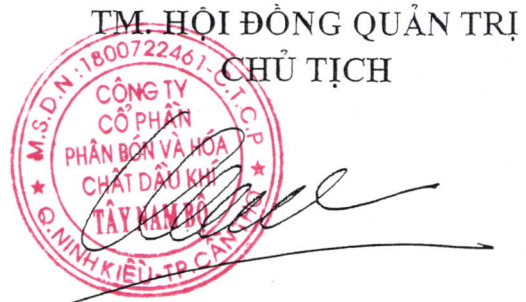 TM. HỘI ĐỒNG QUẢN TRỊ
CHỦ TỊCH
M.S.D.N:1800722461-C.T.C.P
CÔNG TY
CỔ PHẦN
PHÂN BÓN VÀ HÓA
CHẤT DẦU KHÍ
TÂY NAM BỘ
Q.NINH KIỀU-TP.CẦN THƠ